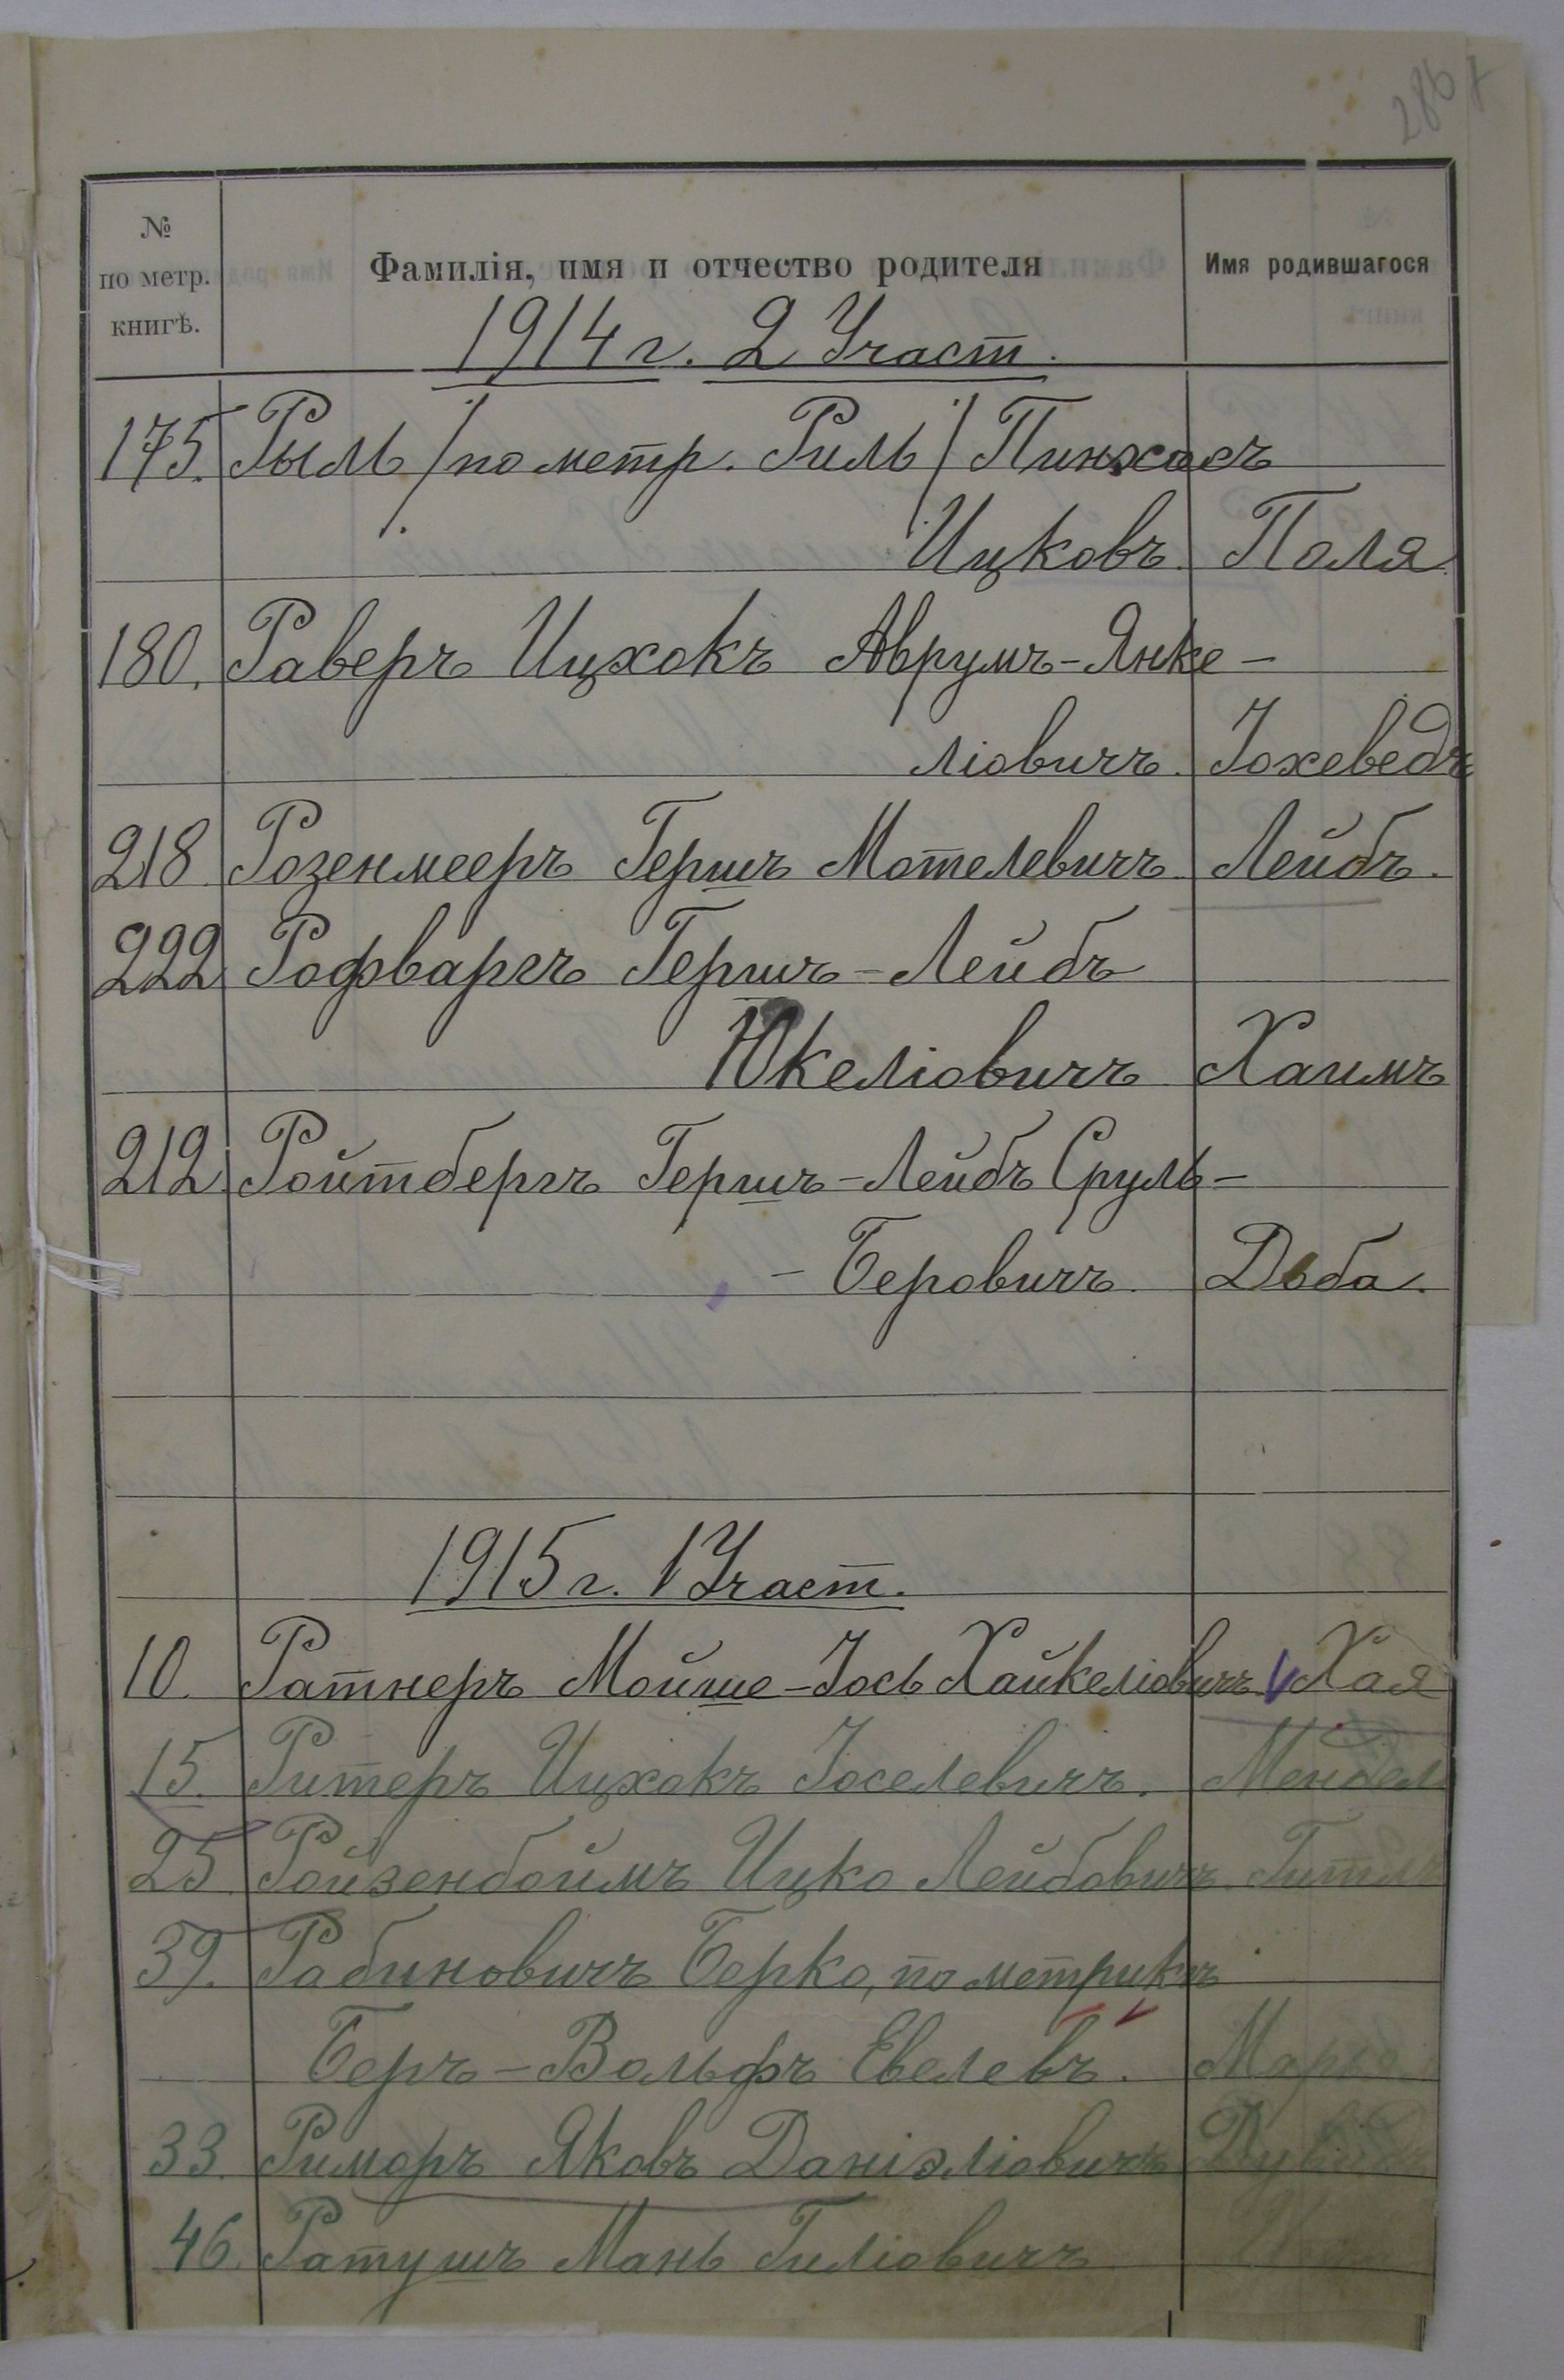 286
№
по метр.
книгѣ.
Фамилія, имя и отчество родителя
Имя родившагося
1914 г. 2 Участ.
175. Рыль / по метр. Риль / Пинхасъ
Ицковъ. Поля
180. Раверъ Ицхокъ Аврумъ-Янке-
ліовичъ. Іохеведъ
218 Розенмееръ Гершъ Мотелевичъ. Лейбъ.
222 Рофваргъ Гершъ-Лейбъ
Юкеліовичъ Хаимъ
212. Ройтбергъ Гершъ-Лейбъ Сруль-
- Беровичъ. Двба.
1915 г. 1 Участ.
10. Ратнеръ Мойше-Іось Хайкеліовичъ Хая
15. Ритеръ Ицхокъ Іоселевичъ. Мендель
25 Ройзенбоймъ Ицко Лейбовичъ
39. Рабиновичъ Берко, по метрикѣ
Беръ-Вольфъ Евелевъ.
33. Риморъ Яковъ Даніэліовичъ
46. Ратушъ Мань Гиліовичъ